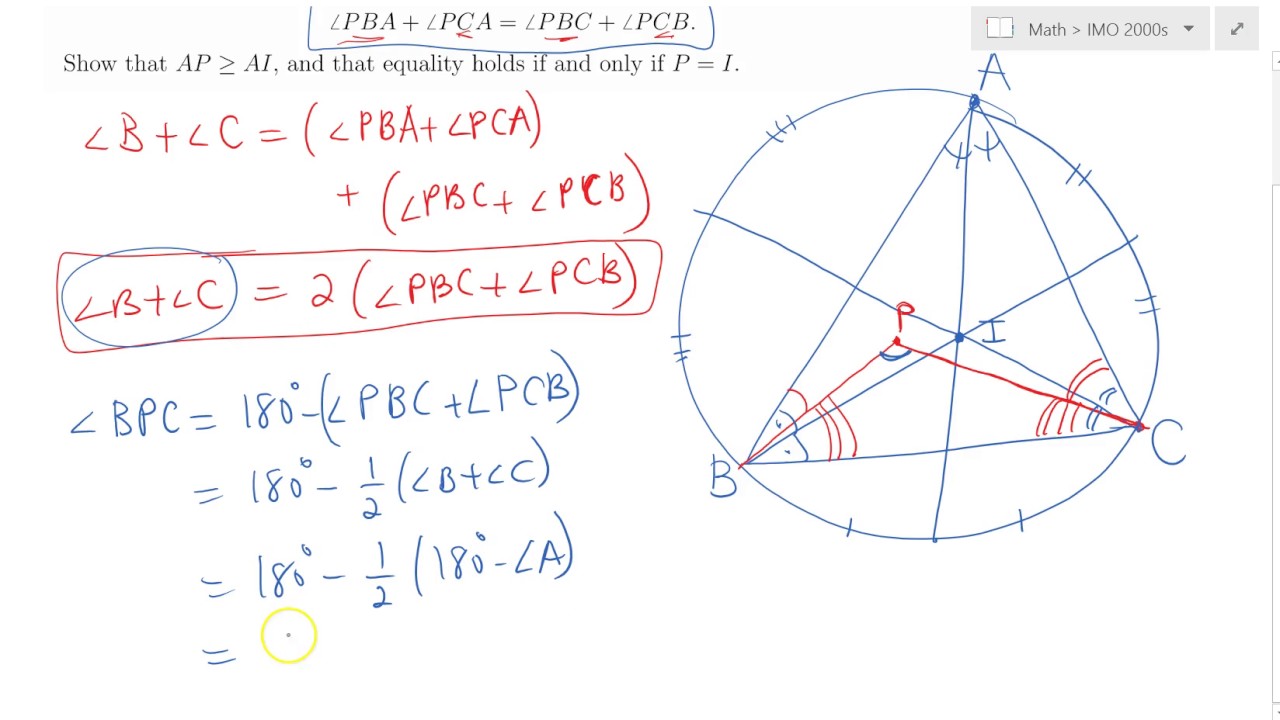 ∠PBA + ∠PCA = ∠PBC + ∠PCB.
Math > IMO 2000s
Show that AP ≥ AI, and that equality holds if and only if P = I.
∠B + ∠C = (∠PBA + ∠PCA)
+ (∠PBC + ∠PCB)
∠B + ∠C = 2 (∠PBC + ∠PCB)
∠BPC = 180° - (∠PBC + ∠PCB)
= 180° - 1/2 (∠B + ∠C)
= 180° - 1/2 (180° - ∠A)
=
A
P
I
B
C